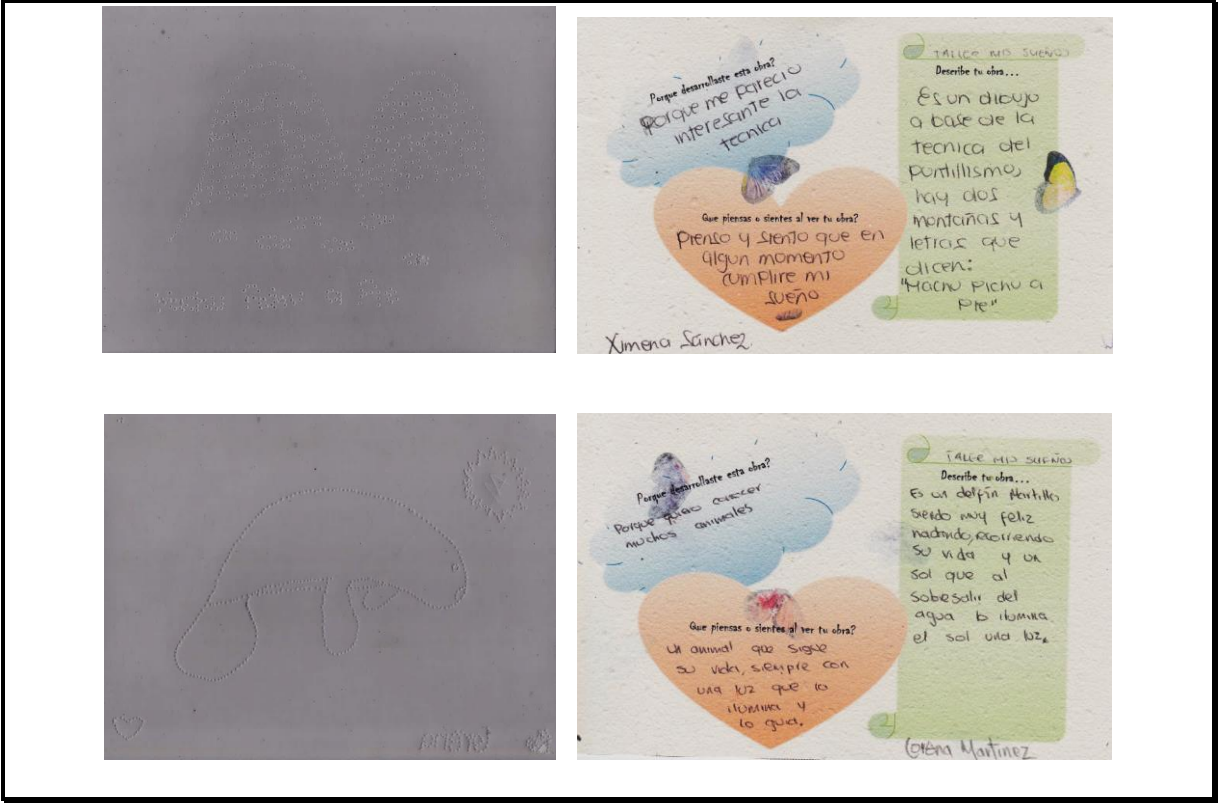 Porque desarrollaste esta obra?
Porque me pareció
interesante la
tecnica
Que piensas o sientes al ver tu obra?
Pienso y siento que en
algun momento
cumplire mi
sueño
Ximena Sánchez
TALLER MIS SUEÑOS
Describe tu obra...
Es un dibujo
a base de la
tecnica del
puntillismo,
hay dos
montañas y
letras que
dicen:
"Machu Pichu a
Pie"
Porque desarrollaste esta obra?
Porque quiero conocer
muchos animales
Que piensas o sientes al ver tu obra?
un animal que sigue
su vida, siempre con
una luz que lo
ilumina y
lo guia.
TALLER MIS SUEÑOS
Describe tu obra...
Es un delfin
siendo muy feliz
nadando, recorriendo
su vida y un
sol que al
sobresalir del
agua lo ilumina
el sol una luz.
Lorena Martinez
Lorena